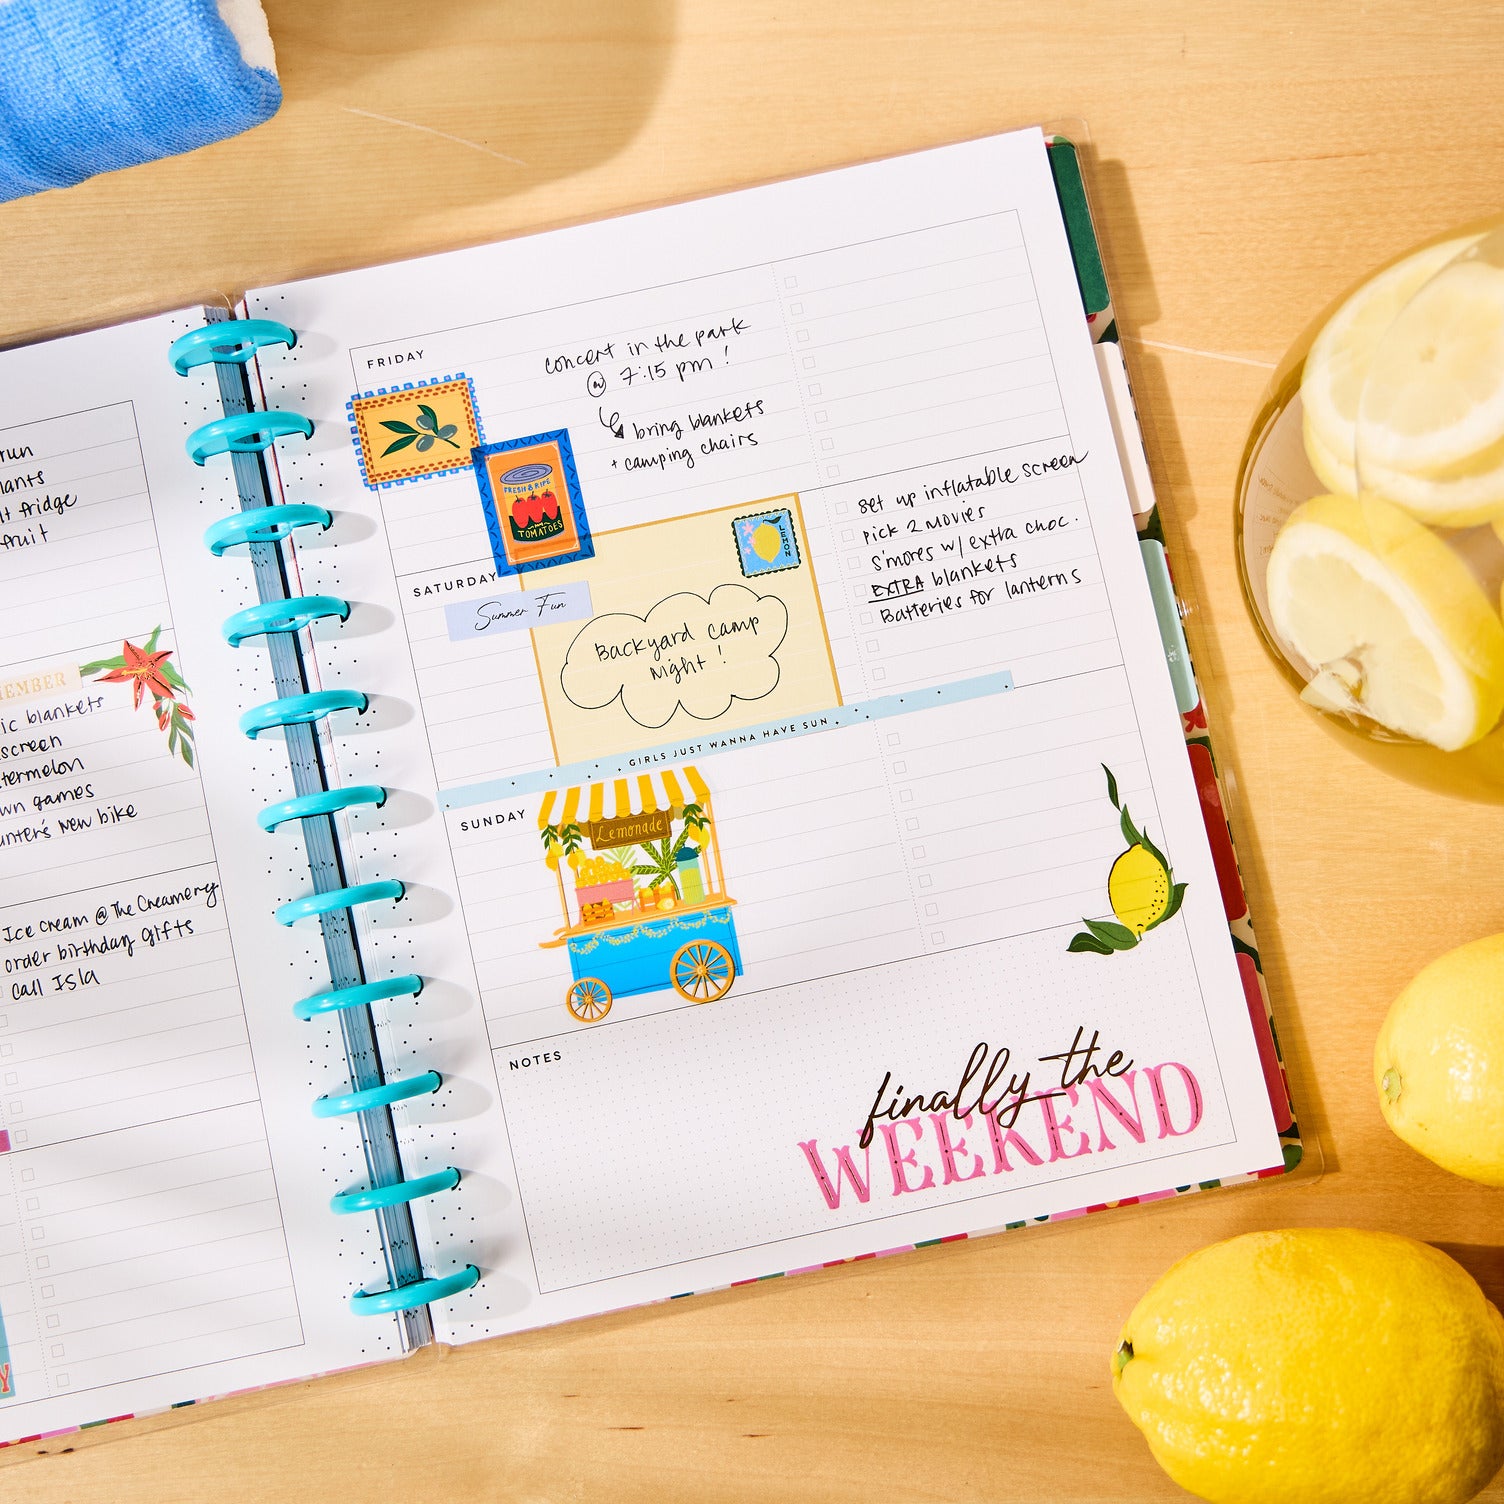 run
fridge
fruit
blankets
screen
games
new bike
Ice cream @ The Creamery
order birthday gifts
call Isla
FRIDAY
concert in the park
@ 7:15 pm !
bring blankets
+ camping chairs
FRESH & RIPE
TOMATOES
SATURDAY
Summer Fun
LEMON
Backyard camp
Night !
set up inflatable screen
pick 2 movies
s'mores w/ extra choc.
EXTRA blankets
Batteries for lanterns
GIRLS JUST WANNA HAVE SUN
SUNDAY
Lemonade
NOTES
finally the
WEEKEND